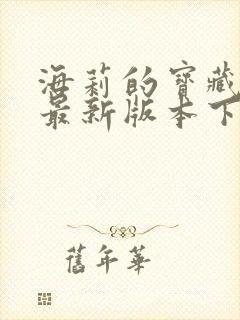 海莉的寶藏
最新版本下
舊年華